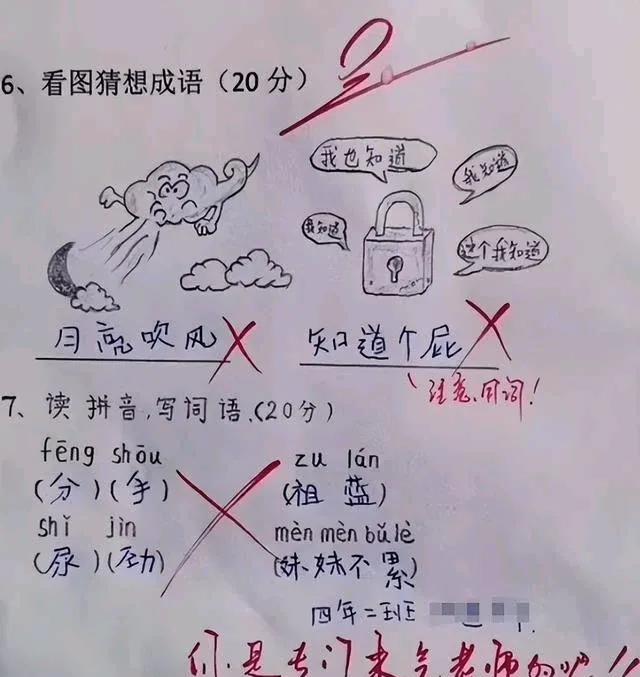 6、看图猜想成语（20分）
我也知道
我知道
我知道
这个我知道
月亮吹风
知道个屁
注意用词！
7、读拼音,写词语.(20分)
fēng shōu
zu lán
(分)(手)
(祖 蓝)
shǐ jìn
mèn mèn bǔ lè
(尿)(劲)
(妹妹不累)
四年二班
你是专门来气老师的吧!!